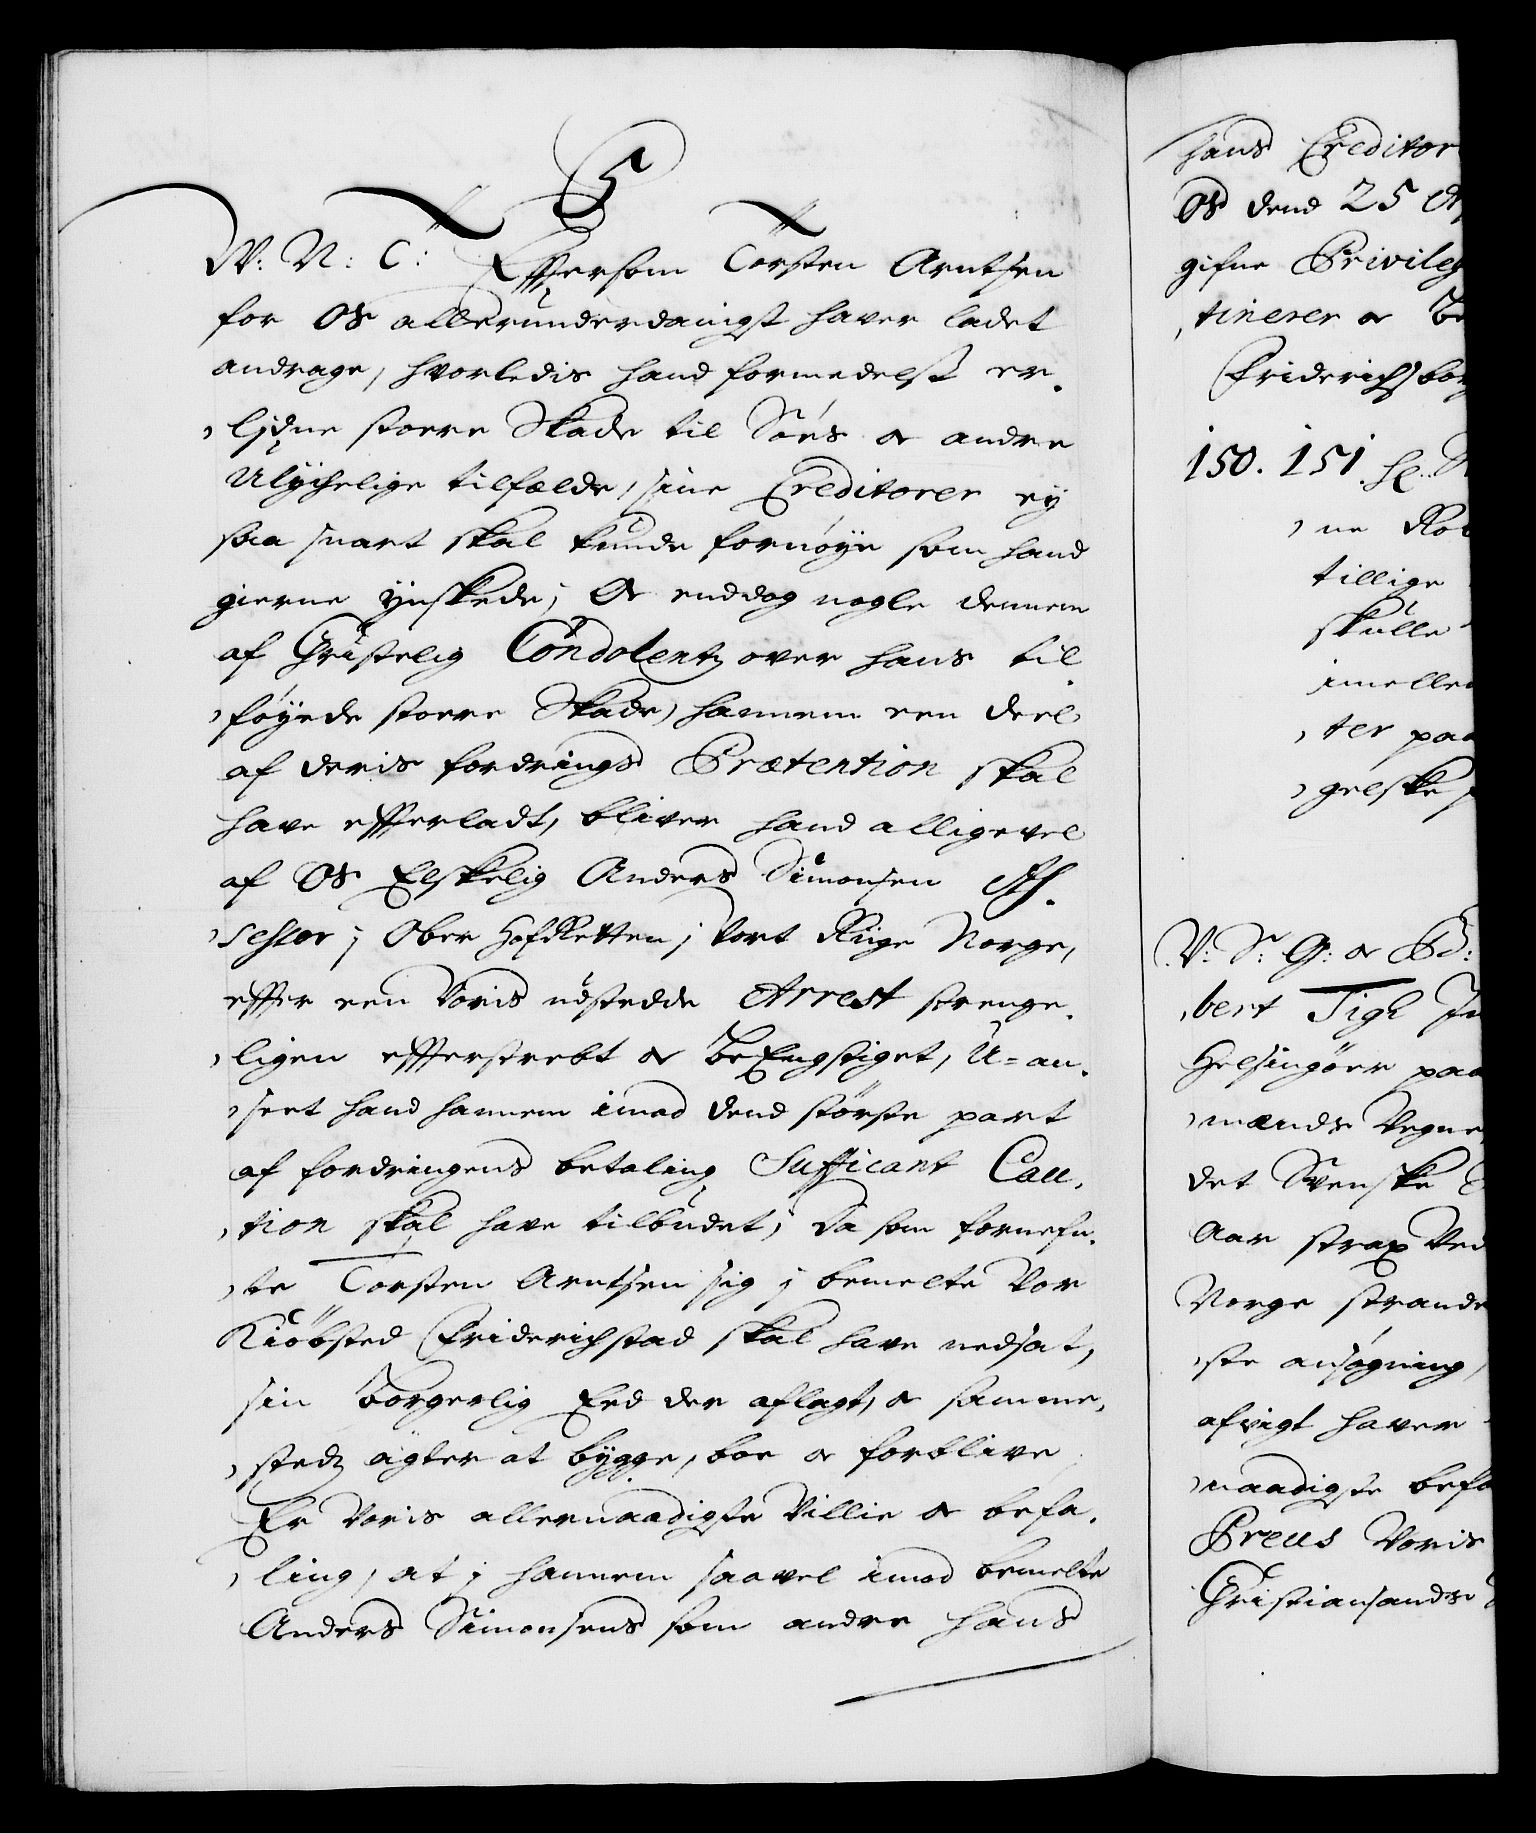 5
W: N: C: Effersom Torsten Arntsen
for Os allerunderdanigst haver ladet
andrage, hvorledis hand formedelst er-
lidne storre Skade til Søes oc andre
Ulychelige tilfælde, sine Creditorer ey
saa snart skal kunde fornøye som hand
gierne ynskede; Oc enddog nogle dennem
af Christelig Condolentz over hans til-
føyede storre Skade, hannem een deel
af deris fordrings Prætention skal
have efferladt, bliver hand alligevel
af Os Elskelig Anders Simonsen As-
sessor j Ober HofRetten j Vort Rige Norge,
effter een Voris udstedde Arrest strenge-
ligen effterstrebt oc beEngstiget, U=an-
seet hand hannem imod dend største part
af fordringens betaling Sufficant Cau-
tion skal have tilbudet; Da som fornefn-
te Torsten Arntsen sig j bemelte Vor
Kiöbsted Friderichstad skal have nedsat,
sin borgerlig Eed der aflagt, oc samme-
stedz agter at bygge, boe oc forblive
Er Voris allernaadigste Villie oc befa-
ling, at j hannem saavel imod bemelte
Anders Simonsens som andre hans
hans Creditor
Os dend 25
gifne Privileg
tinerer oc be
Friderichsbor
150. 151.
ne
tillige
skulle
imellem
ter paa
gelske
V: S: G: oc
bert Tigh
Helsingöer paa
mænds Vegne
det Svenske
Aar strax Ved
Norge strande
ste ansøgning,
afvigt haver
naadigste befa
Preus Voris
Christiansands